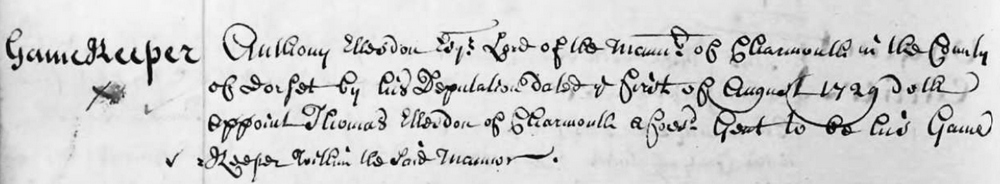 Game Keeper Anthony Ellesdon Esqr. Lord of the Mannr. of Charmouth in the County
of Dorset by his Deputation dated ye first of August 1729 Doth
appoint Thomas Ellesdon of Charmouth aforesd. Gent to be his Game
Keeper within the said Mannor.